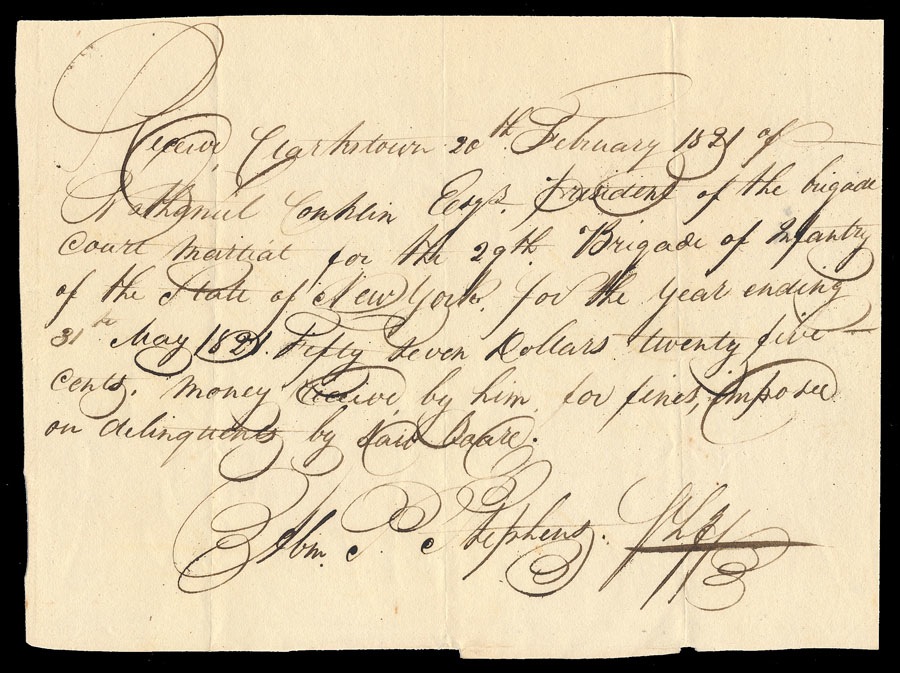 Receivd Clarkstown 20th February 1821 of
Nathaniel Conklin Esqr. President of the brigade
Court Martial for the 29th. Brigade of Infantry
of the State of New York. for the year ending
31th May 1821. Fifty Seven Dollars twenty five
cents. money Receivd by him for fines, imposed
on delinquents by Said Board.
Abm. P. Stephens. Shff